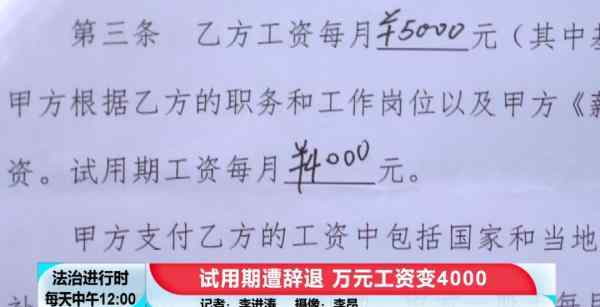 第三条 乙方工资每月¥5000元（其中基
甲方根据乙方的职务和工作岗位以及甲方《薪
资。试用期工资每月¥4000元。
甲方支付乙方的工资中包括国家和当地
法治进行时
每天中午12:00
试用期遭辞退 万元工资变4000
记者：李进涛 摄像：李昂